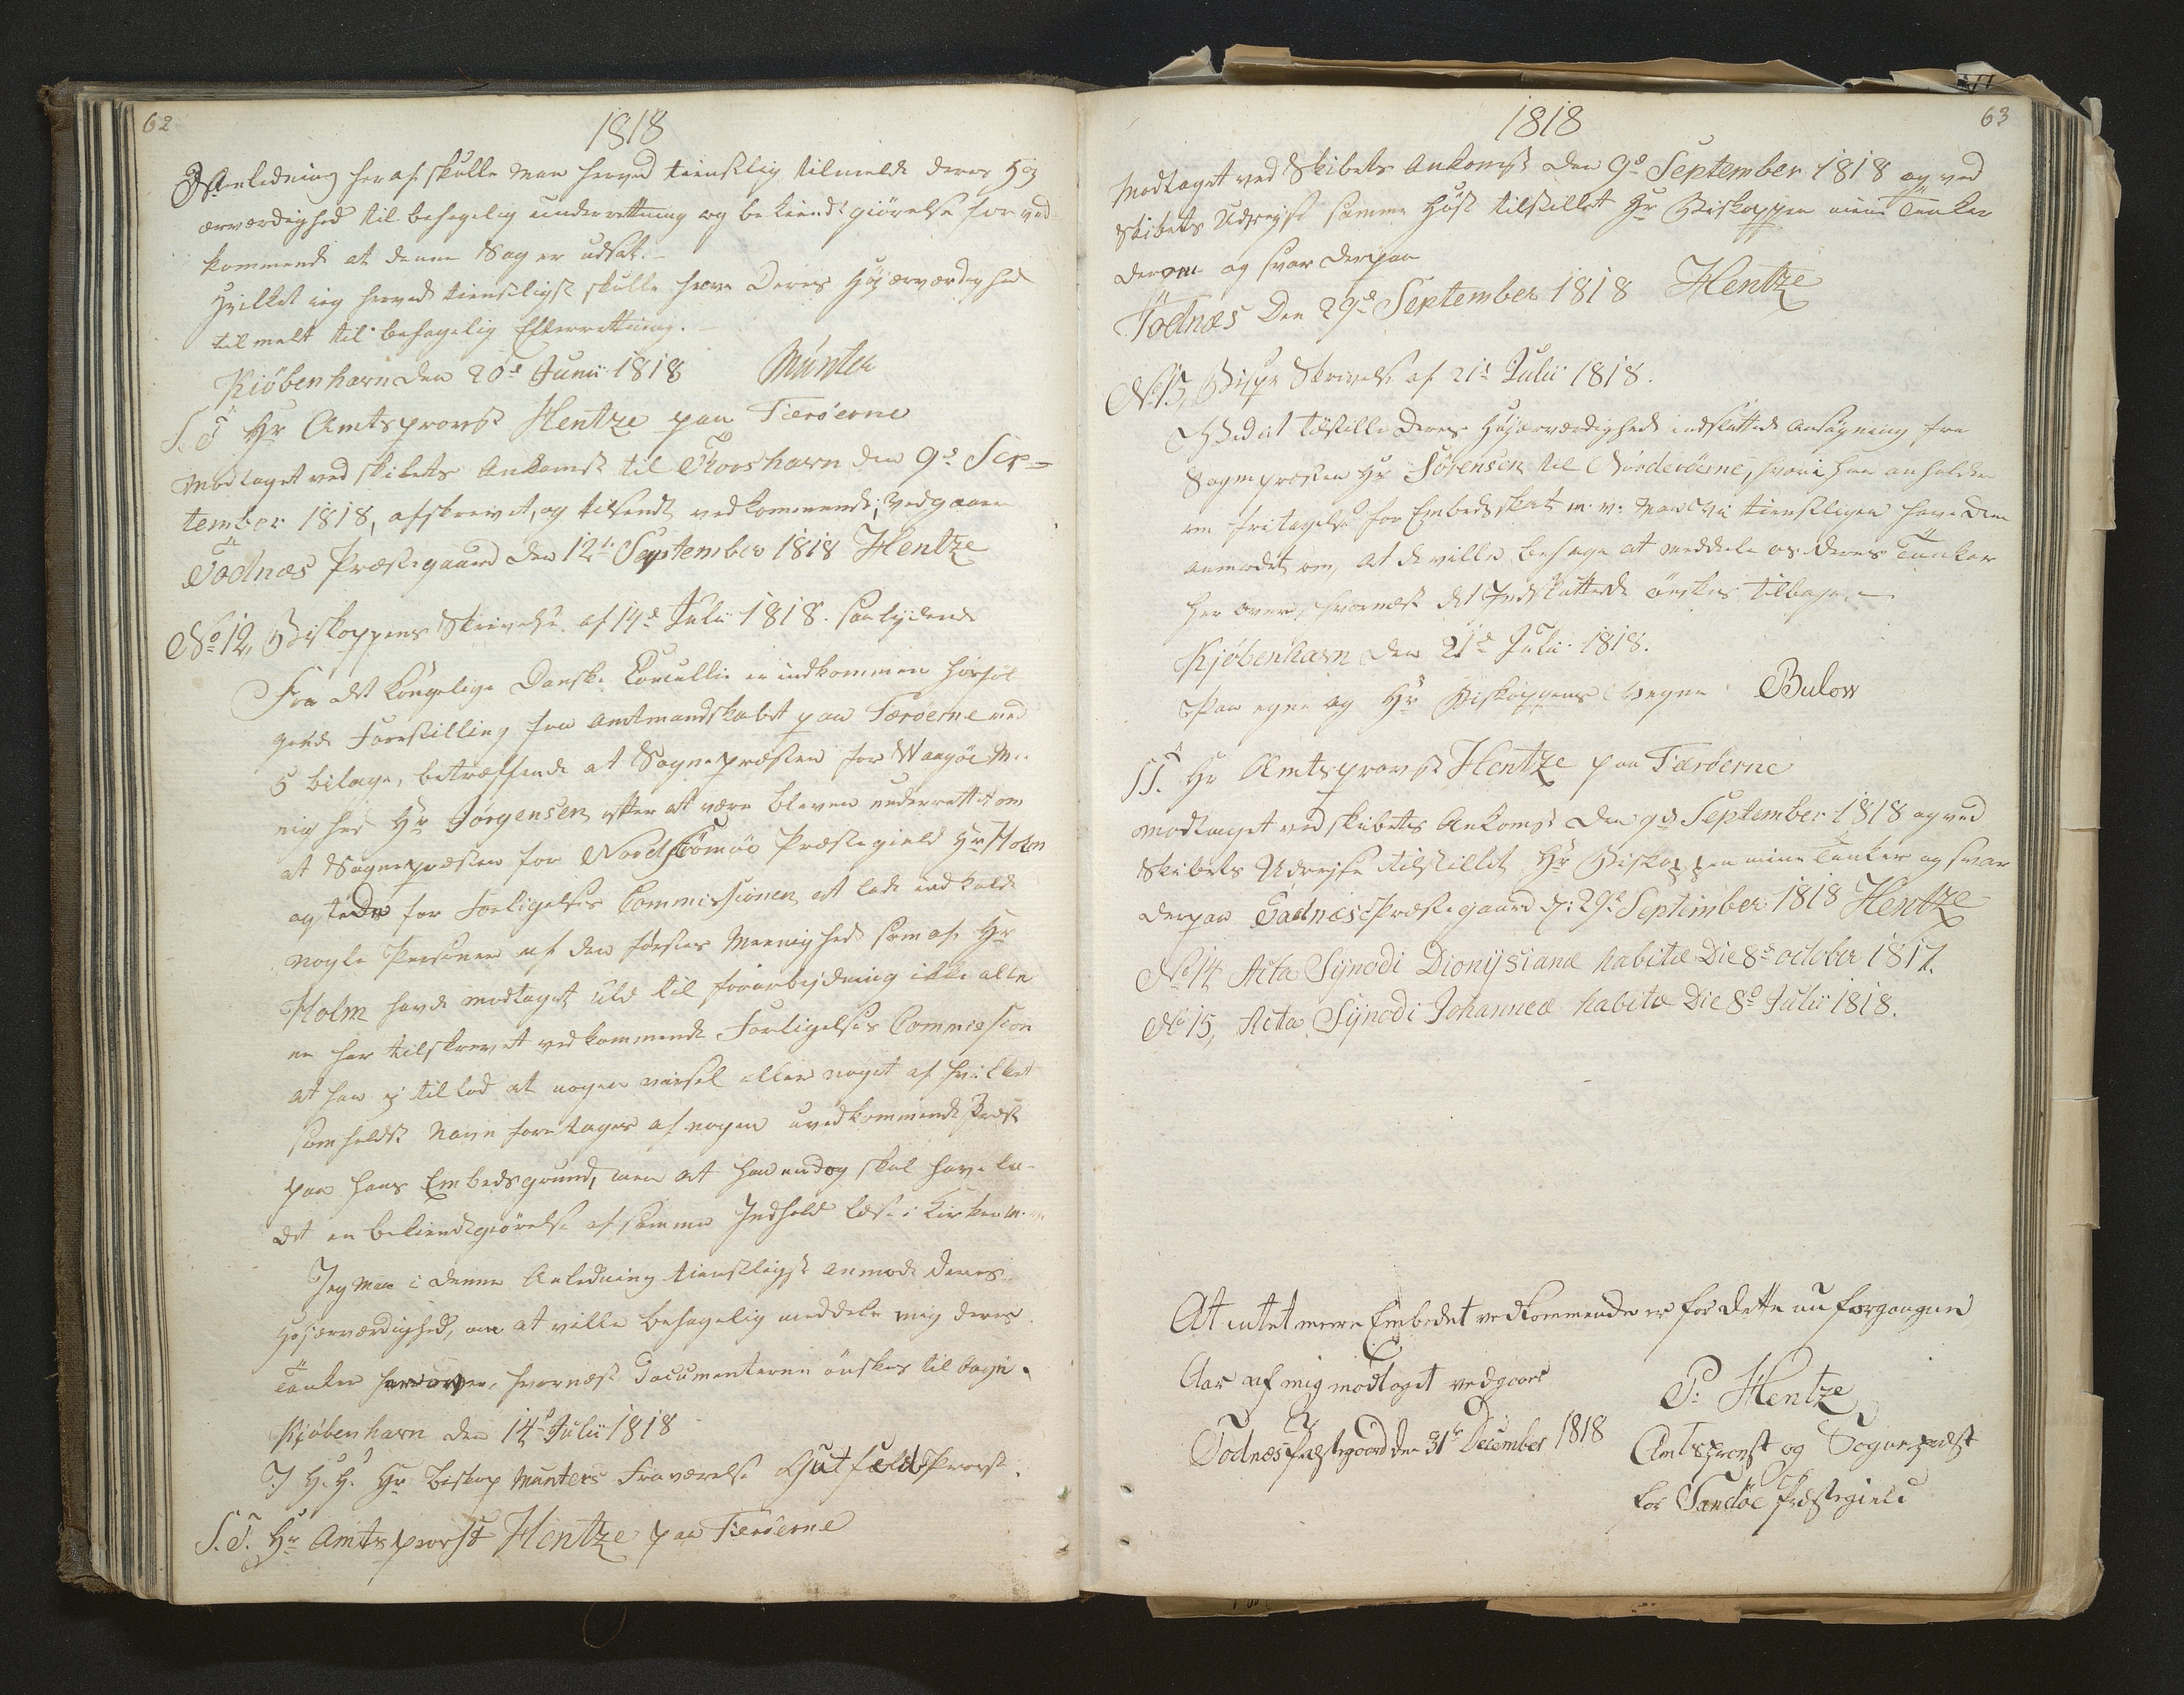 62
1818
I Anledning heraf skulle man herved tienstlig tilmelde deres Høj
ærværdighed til behagelig underretning og bekiendtgiörelse for ved
kommende at denne Sag er udsat.
Hvilket ieg herved tienstligst skulle have Deres Høiærværdighed
tilmelt til behagelig Efterretning.
Kiöbenhavn den 20d Junii 1818 Münter
S. T. Hr Amtsprovst Hentze paa Færöerne
Modtaget ved skibets Ankomst til Thorshavn den 9d Sep=
tember 1818, afskrevet, og tilsendt vedkommende; Vedgaaer
Todnæs Præstegaard den 12te September 1818 Hentze
No 12, Biskoppens Skrivelse af 14d Julii 1818. saalydende
Fra det kongelige Danske Cancellie er indkommen hosföl
gende Forestilling fra Amtmandskabet paa Færöerne med
5 bilage, betræffende at Sognepræsten for Waagöe Me
nighed Hr Jörgensen efter at være bleven underrettet om
at Sognepræsten for Nordströmöe Præstegield Hr Holm
agtede for Forligelses Commissionen at lade indkalde
nogle Personer af den förstes Meenighed som af Hr
Holm havde modtaget Uld til forarbejdning ikke alle
ne har tilskrevet vedkommende Forligelses Commission
at han ej tillod at nogen varsel eller noget af hvilket
somhelst Navn foretages af nogen uvedkommende Præst
paa hans Embedsgrund, men at han endog skal have la-
det en bekiendtgiörelse af samme Indhold læse i Kirken m. v.
Jeg maa i denne Anledning tienstligst anmode deres
Höjærværdighed, om at ville behagelig meddele mig deres
Tanker herover, hvornæst Documenterne önskes tilbage.
Kjöbenhavn den 14d Julii 1818
I H. H. Hr Biskop Münters Fraværelse Gutfeld Provst.
S. T. Hr Amtsprovst Hentze paa Færöerne
63
1818
Modtaget ved Skibets Ankomst den 9d September 1818 og ved
Skibets Udrejse samme Höst tilstillet Hr Biskoppen mine Tanker
derom og svar derpaa
Todnæs Den 29d September 1818 Hentze
No 13, Bispe Skrivelse af 21d Julii 1818.
Ved at tilstille Deres Höjærværdighed indsluttede Ansögning fra
Sognepræsten Hr Sörensen til Norderöerne, hvori han anholder
om fritagelse for Embedsskat m. v. maa vi tienstligen have dem
anmodet om, at de ville behage at meddele os deres Tanker
her over, hvornæst det Indsluttede önskes tilbage.
Kjöbenhavn den 21d Julii 1818.
Paa egne og Hr Biskoppens Vegne Bulow
S. T. Hr Amtsprovst Hentze paa Færöerne
Modtaget ved skibets Ankomst den 9d September 1818 og ved
Skibets Udrejse tilstillet Hr Biskoppen mine Tanker og svar
derpaa Todnæs Præstegaard d: 29d September 1818 Hentze
No 14 Acta Synodi Dionysianæ habitæ Die 8d october 1817.
No 15, Acta Synodi Johanneæ habitæ Die 8d Julii 1818.
At intet meere Embedet vedkommende er for dette nu forgangne
Aar af mig modtaget vedgaaes
Todnæs Præstegaard den 31te December 1818
P. Hentze
Amtsprovst og Sognepræst
for Sandöe Præstegield